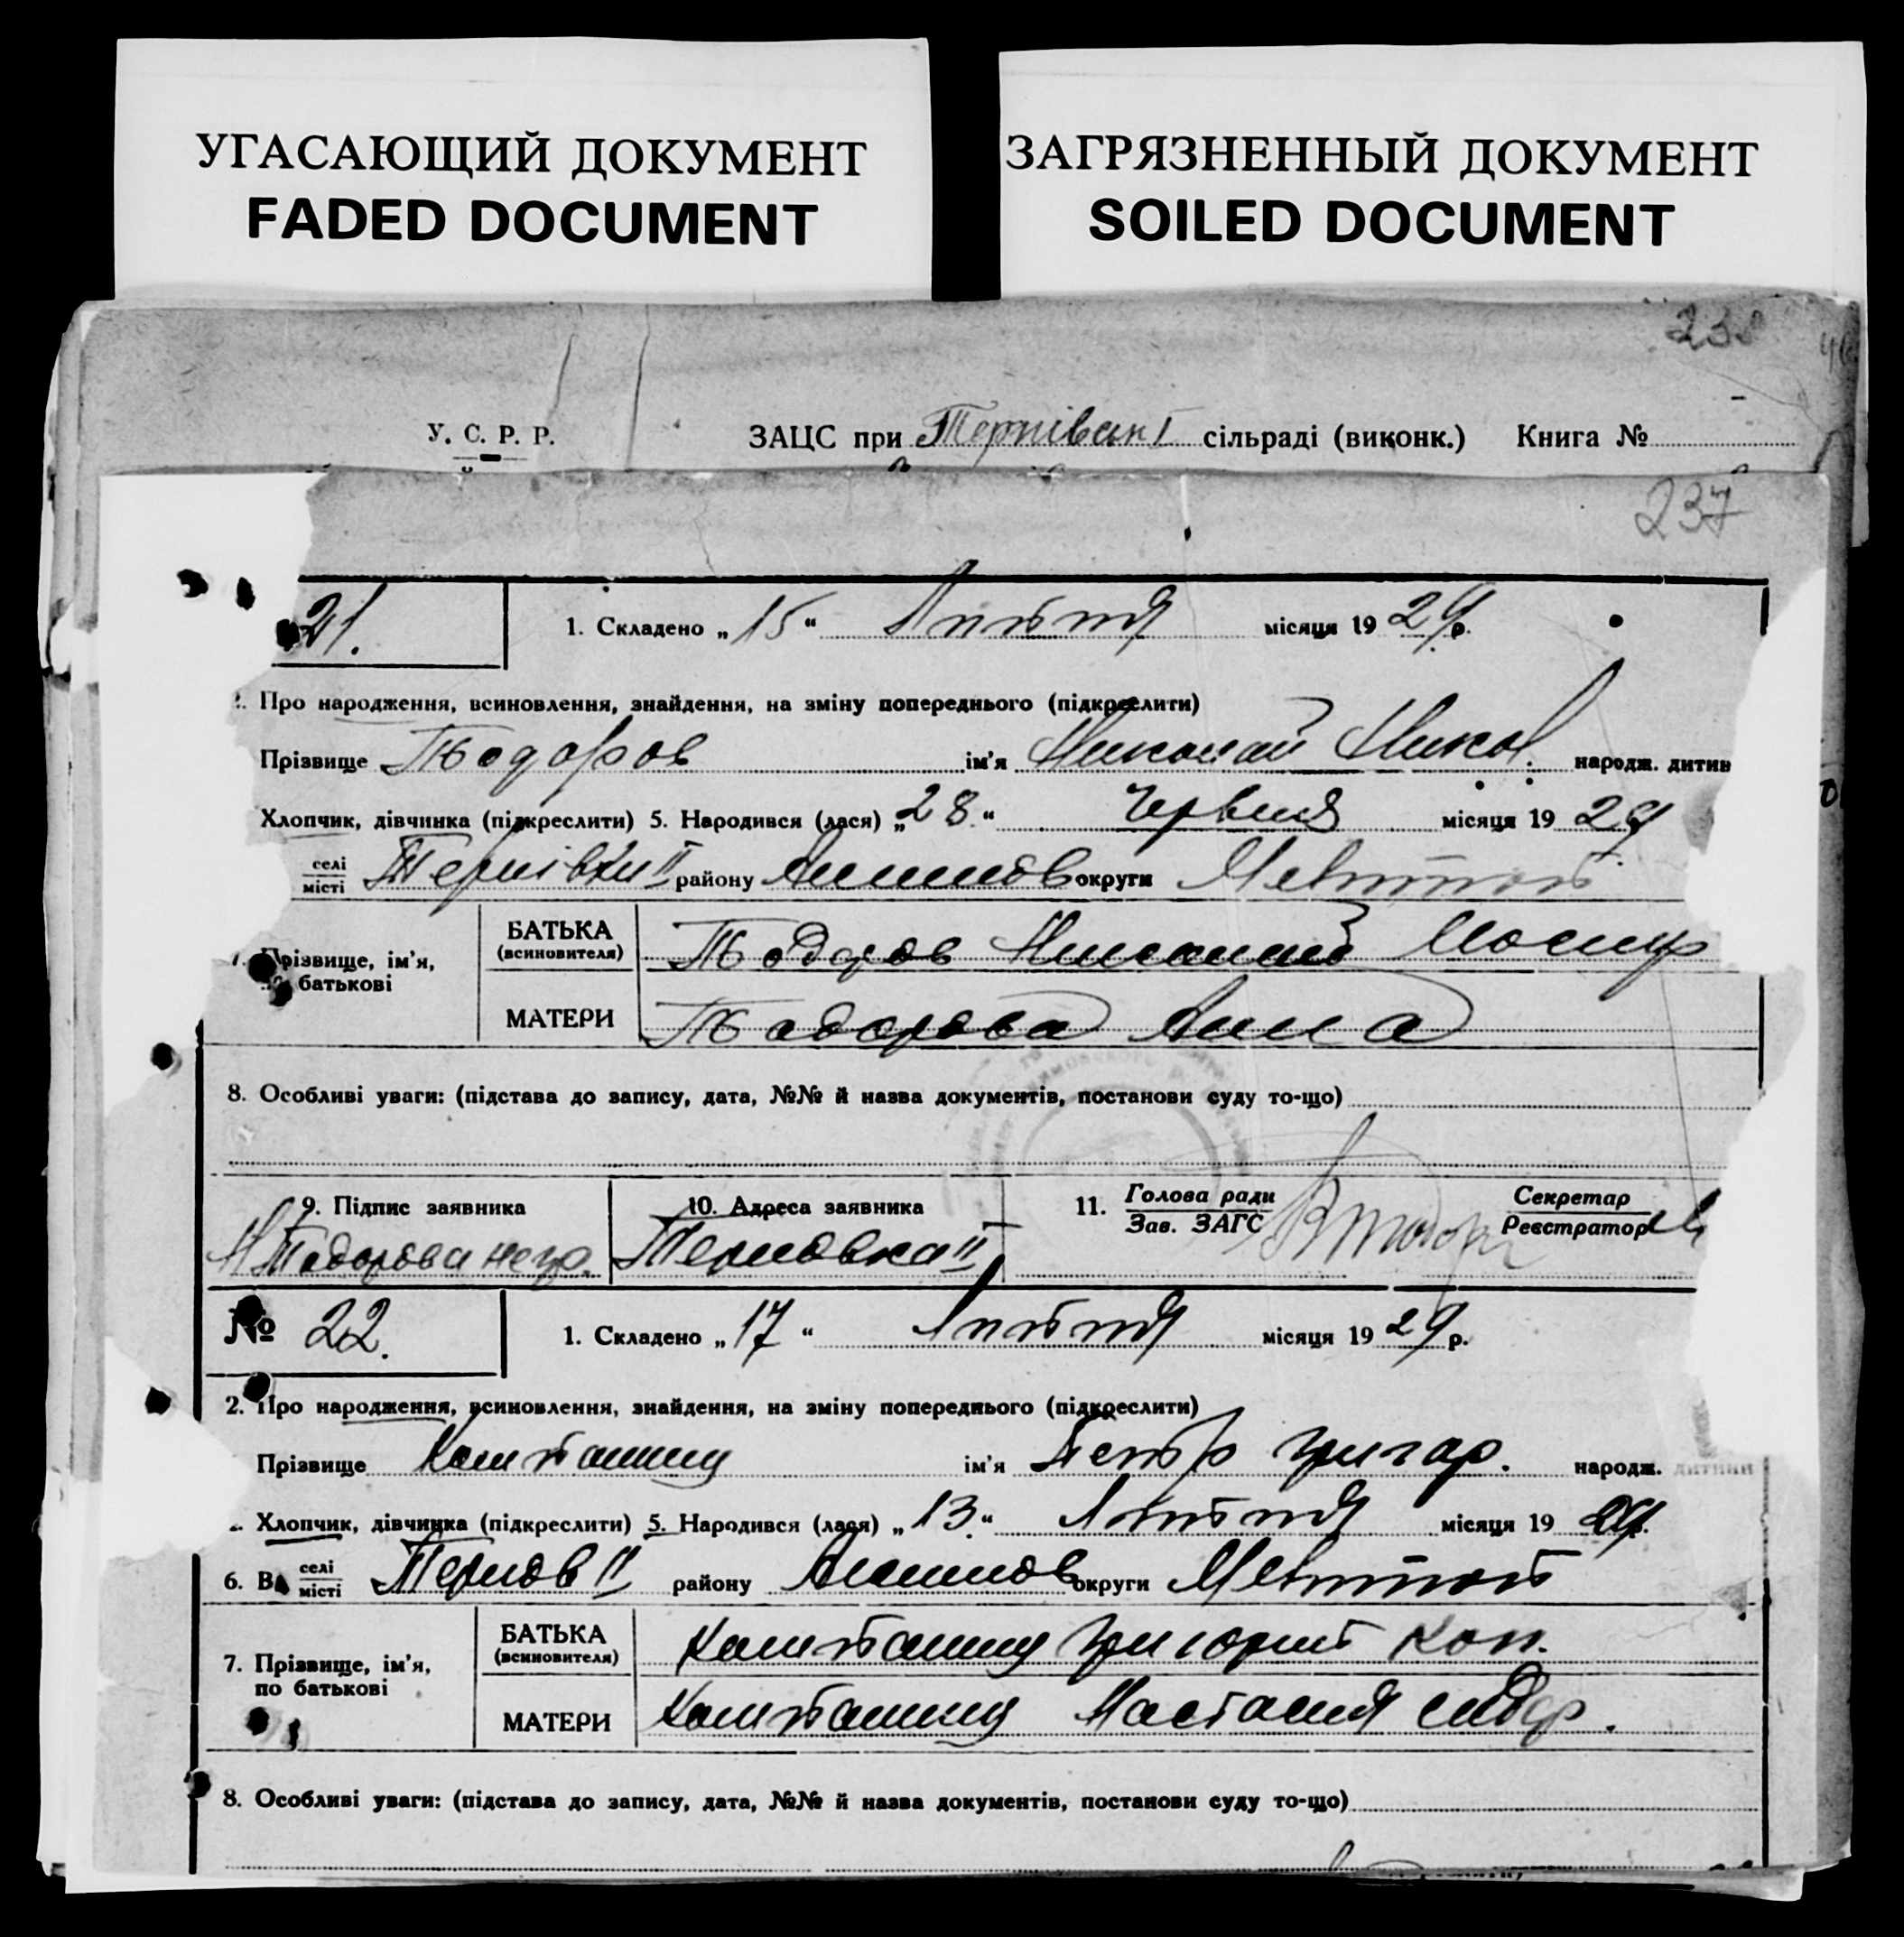 УГАСАЮЩИЙ ДОКУМЕНТ
FADED DOCUMENT
ЗАГРЯЗНЕННЫЙ ДОКУМЕНТ
SOILED DOCUMENT
У. С. Р. Р. ЗАЦС при сільраді (виконк.) Книга №
237
21. 1. Складено „15“ Липня місяця 1929 р.
Про народження, всиновлення, знайдення, на зміну попереднього (підкреслити)
Прізвище Тодоров ім'я Николай Никол. народж. дитин
Хлопчик, дівчинка (підкреслити) 5. Народився (лася) „28“ Червня місяця 1929
селі
місті Тернівки II району округи Мелитоп
7. Прізвище, ім'я,
батькові
БАТЬКА
(всиновителя)
Тодоров Николай
МАТЕРИ Тодорова Анна
8. Особливі уваги: (підстава до запису, дата, №№ й назва документів, постанови суду то-що)
9. Підпис заявника 10. Адреса заявника 11. Голова ради
Зав. ЗАГС
Секретар
Реєстратор
Тодорова Терновка II
№ 22. 1. Складено „17“ Липня місяця 1929 р.
2. Про народження, всиновлення, знайдення, на зміну попереднього (підкреслити)
Прізвище ім'я Петр Григор. народж. дитини
Хлопчик, дівчинка (підкреслити) 5. Народився (лася) „13“ Липня місяця 1929
6. В селі
місті Тернов II району округи Мелитоп
7. Прізвище, ім'я,
по батькові
БАТЬКА
(всиновителя)
Григорий Кон.
МАТЕРИ Настасия
8. Особливі уваги: (підстава до запису, дата, №№ й назва документів, постанови суду то-що)